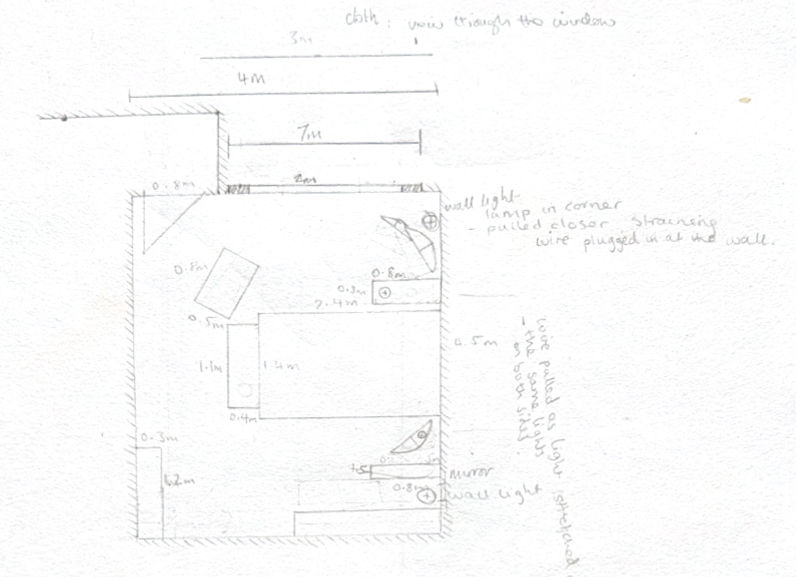 cloth: view through the window
3m
4m
7m
2m
0.8m
wall light
lamp in corner
- pulled closer straining
wire plugged in at the wall.
0.8m
0.8m
0.3m
2.4m
0.5m
1.1m
1.4m
0.4m
4.5m
wire pulled as light stretched
- the same lights
on both sides.
0.3m
1.2m
mirror
0.8m
wall light